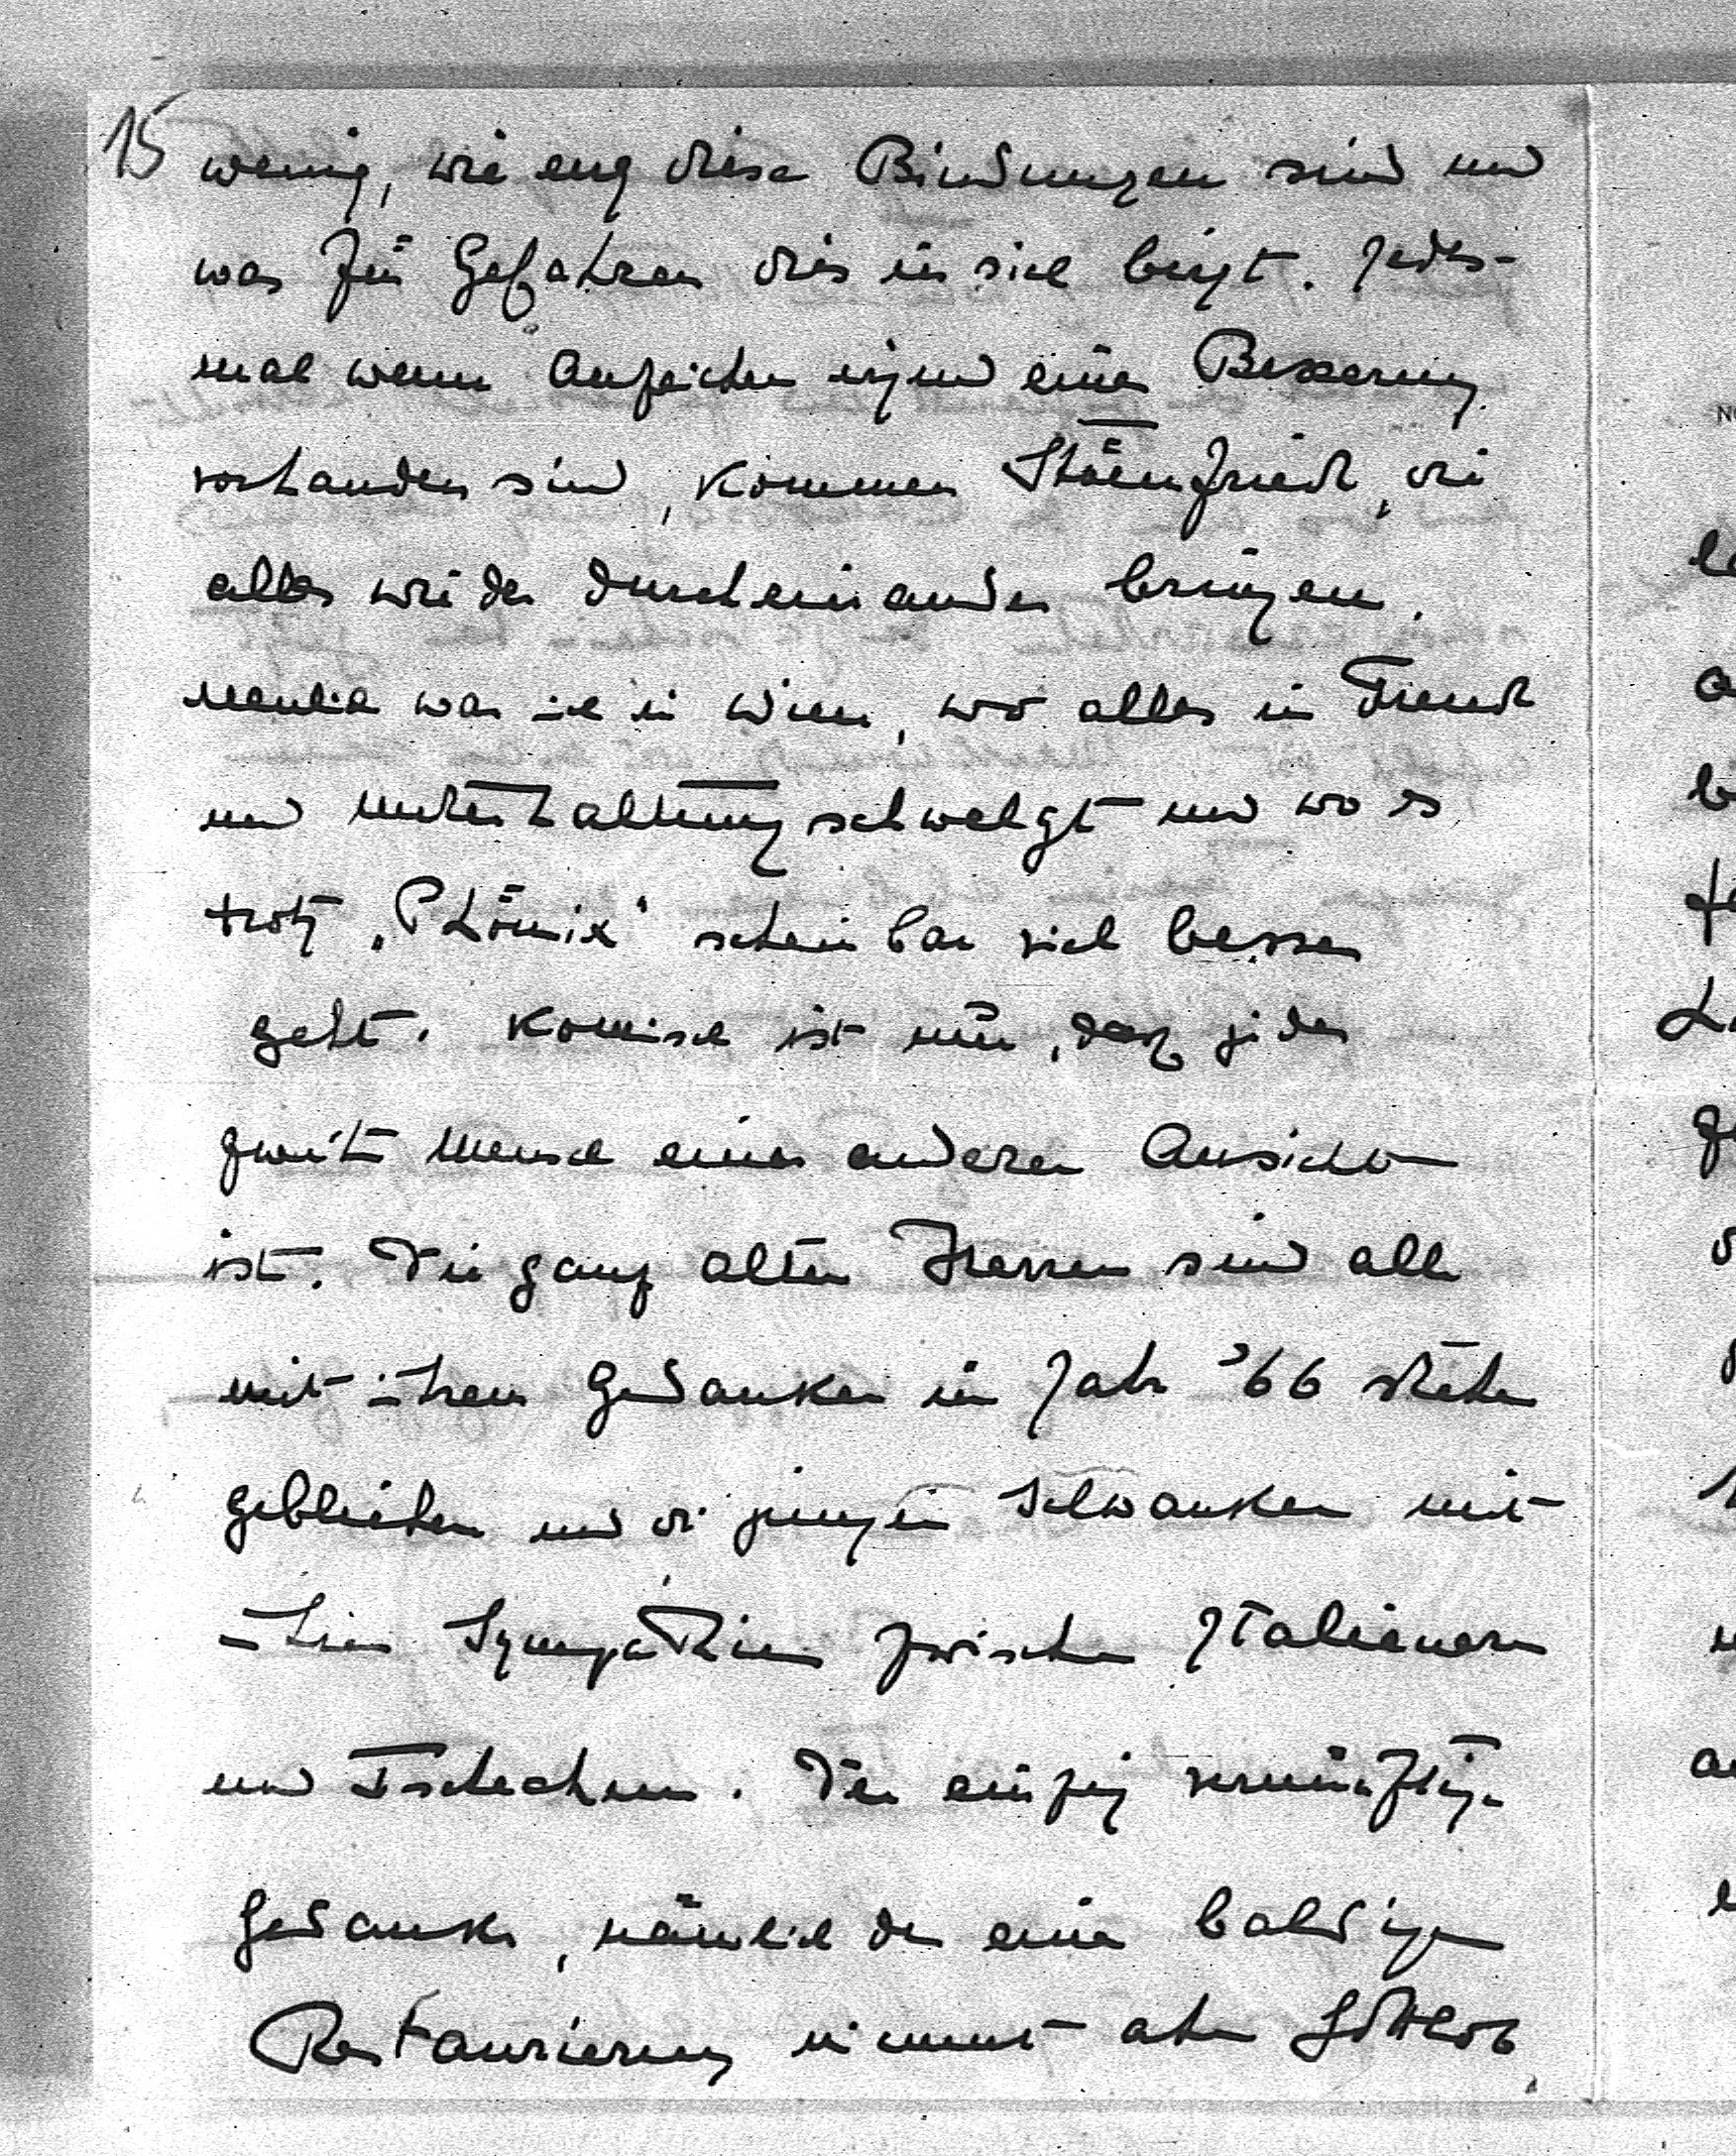 15 wenig, wie eng diese Bindungen sind und
was für Gefahren dies in sich birgt. Jedes-
mal wenn Anzeichen irgend einer Besserung
vorhanden sind, kommen Störenfriede, die
alles wieder durcheinander bringen.
Neulich war ich in Wien, wo alles in Freude
und Unterhaltung schwelgt und wo es
trotz „Phönix" scheinbar viel besser
geht. Komisch ist nur, daß jeder
zweite Mensch einer anderen Ansicht
ist. Die ganz alten Herren sind alle
mit ihren Gedanken im Jahr '66 stehen
geblieben und die jungen schwanken mit
ihren Sympathien zwischen Italienern
und Tschechen. Der einzig vernünftige
Gedanke, nämlich der einer baldigen
Restaurierung nimmt aber Gottlob